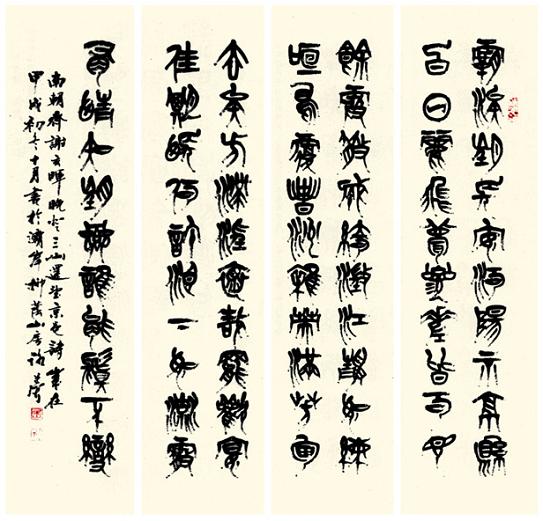 霸涘望長安河陽示京縣
百日麗飛甍參差皆可見
餘霞散成綺澄江靜如練
喧鳥覆春洲雜英滿芳甸
去矣方滯淫懷哉罷歡宴
佳期悵何許淚下如流霰
有情知望鄉誰能鬒不變
南朝齊謝玄暉晚登三山還望京邑詩歲在
甲戌初冬十月書於濟岸柳蔭山房